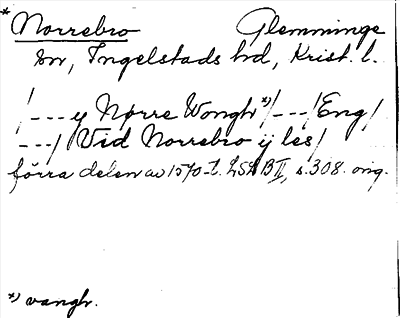 * Norrebro Glemminge
sn, Ingelstads hd, Krist. l.
/--- y Nørre Wongh *)/---/Eng/
---/ Vid Norrebro ij les/
förra delen av 1570-t. LSLB II, s. 308. orig.
*) vangh.